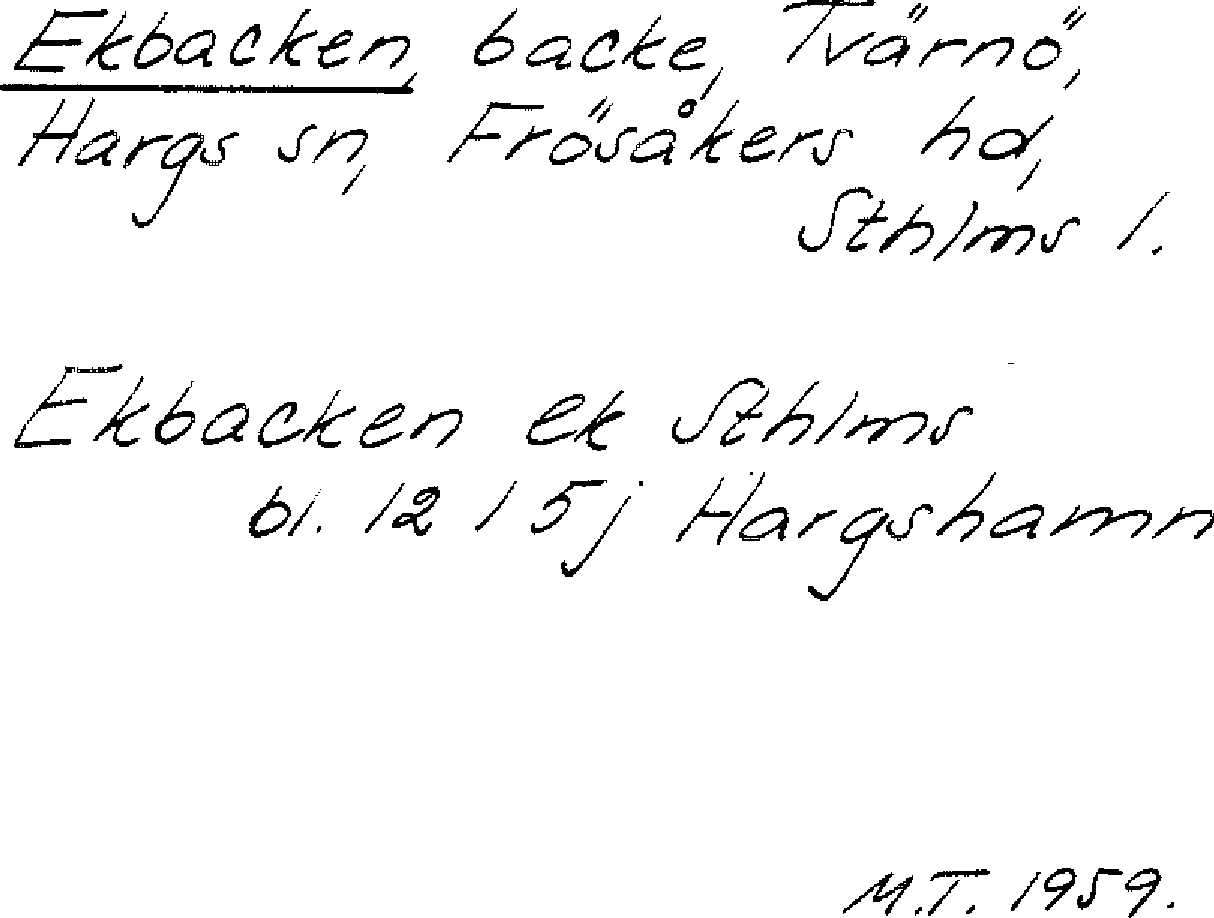 Ekbacken, backe, Tvärnö,
Hargs sn, Frösåkers hd,
Sthlms l.
Ekbacken ek Sthlms
bl. 12 I 5j Hargshamn
M.T. 1959.